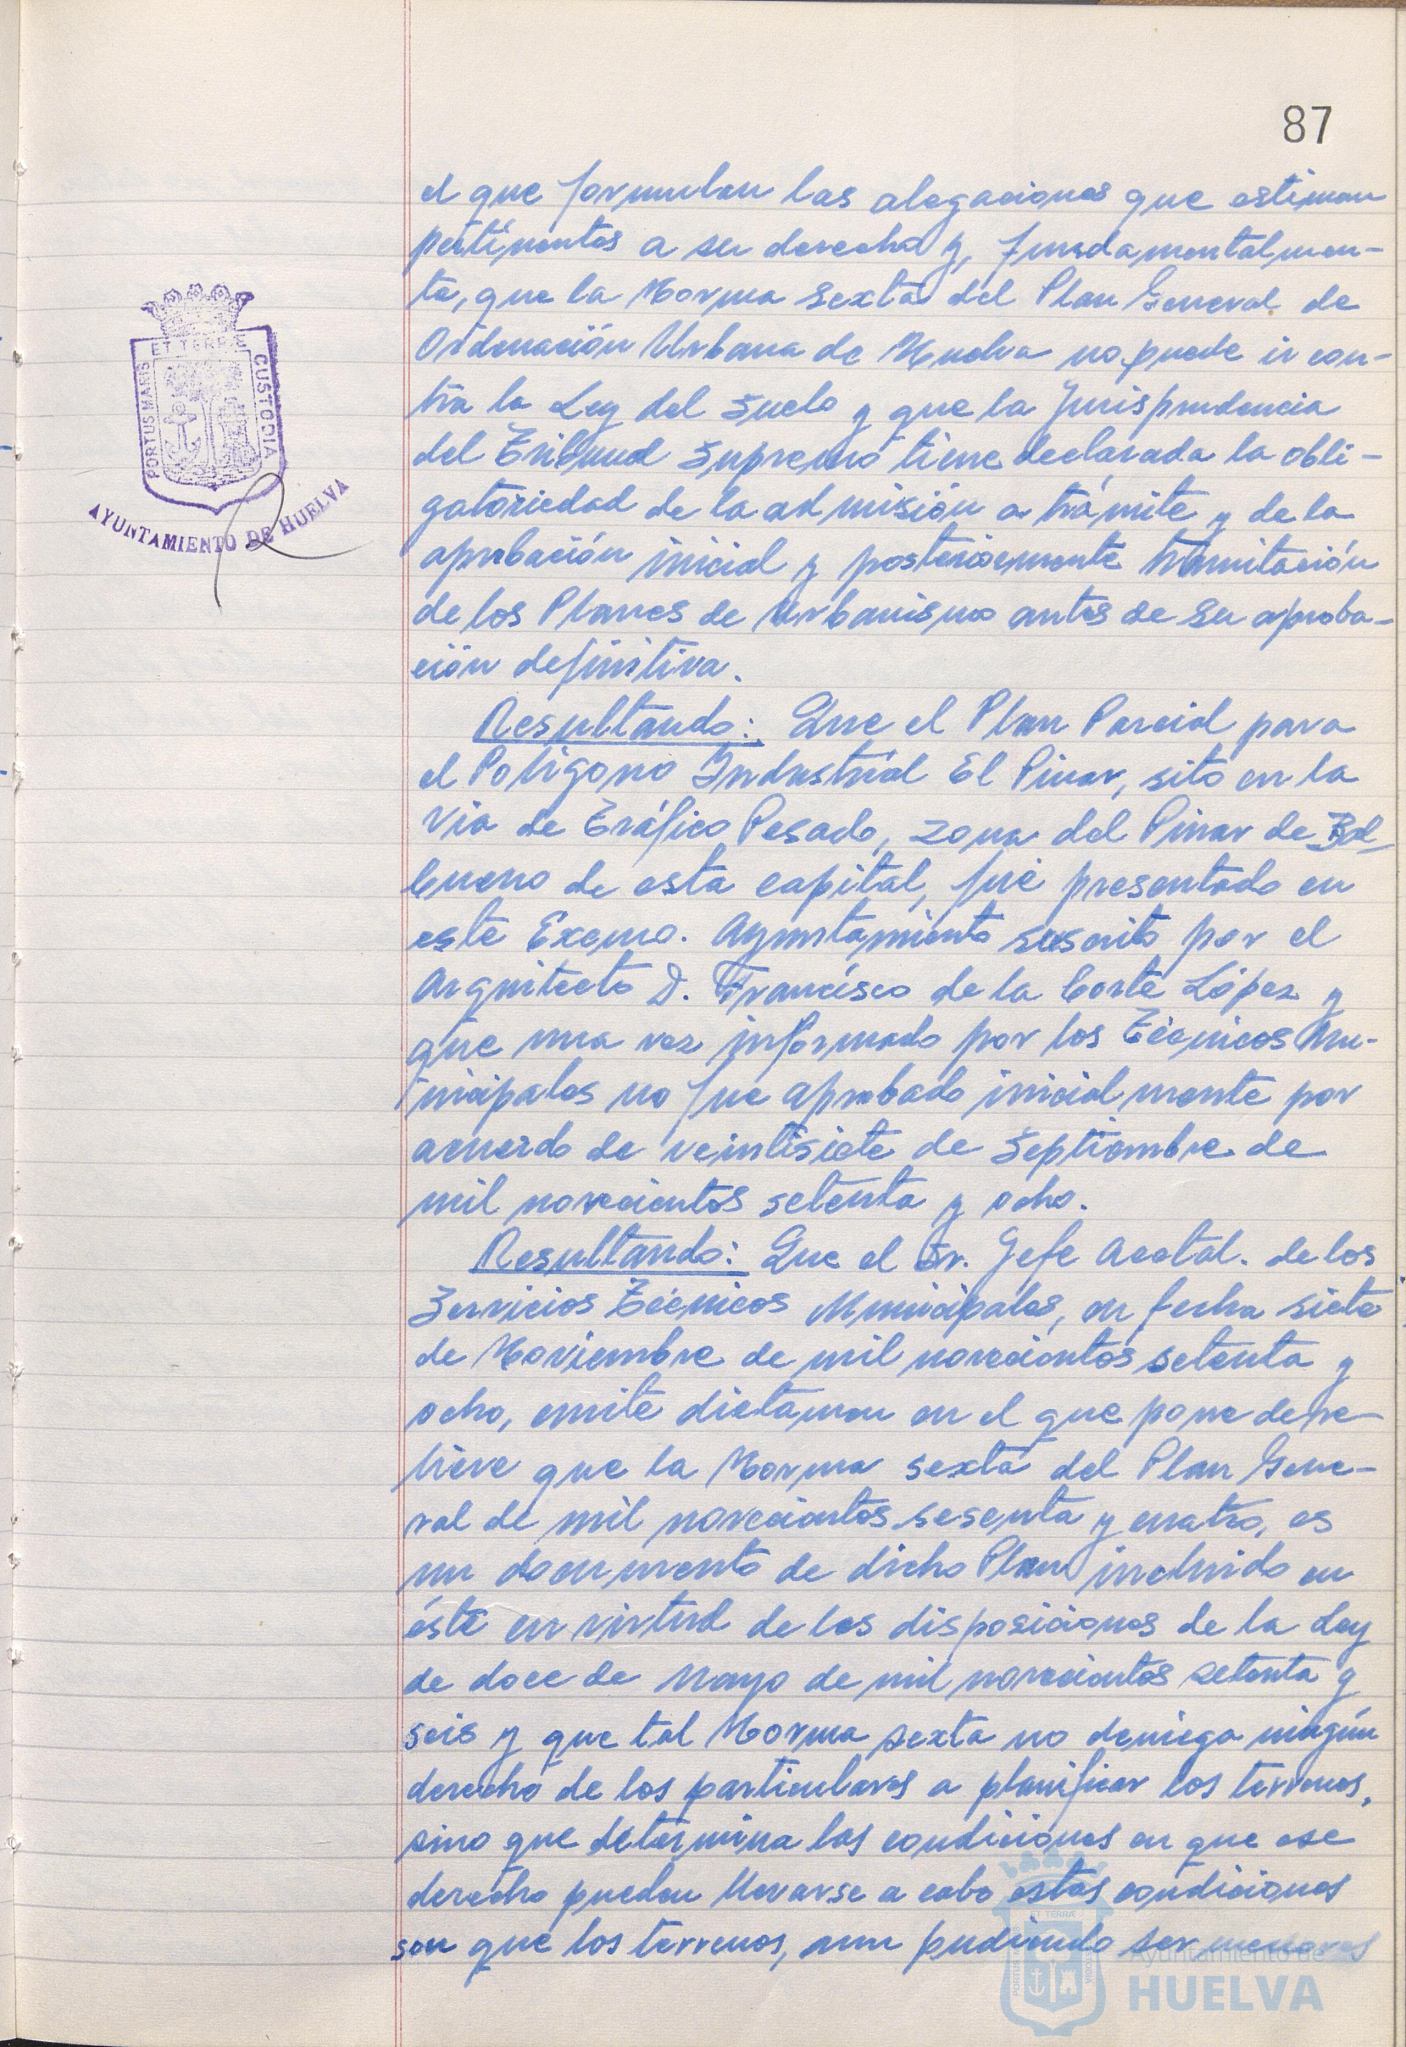 87
el que formulan las alegaciones que estiman
pertinentes a su derecho y, fundamentalmen-
te, que la Norma Sexta del Plan General de
Ordenación Urbana de Huelva no puede ir con-
tra la Ley del Suelo y que la Jurisprudencia
del Tribunal Supremo tiene declarada la obli-
gatoriedad de la admisión a trámite y de la
aprobación inicial y posteriormente tramitación
de los Planes de Urbanismo antes de su aproba-
ción definitiva.
Resultando: Que el Plan Parcial para
el Polígono Industrial El Pinar, sito en la
Via de Tráfico Pesado, zona del Pinar de Bal
bueno de esta capital, fué presentado en
este Excmo. Ayuntamiento suscrito por el
Arquitecto D. Francisco de la Corte López y
que una vez informado por los Técnicos Mu-
nicipales no fue aprobado inicialmente por
acuerdo de veintisiete de Septiembre de
mil novecientos setenta y ocho.
Resultando: Que el Sr. Jefe Acctal. de los
Servicios Técnicos Municipales, en fecha siete
de Noviembre de mil novecientos setenta y
ocho, emite dictamen en el que pone de re-
lieve que la Norma sexta del Plan Gene-
ral de mil novecientos sesenta y cuatro, es
un documento de dicho Plan incluido en
éste en virtud de las disposiciones de la Ley
de doce de Mayo de mil novecientos setenta y
seis y que tal Norma sexta no deniega ningún
derecho de los particulares a planificar los terrenos,
sino que determina las condiciones en que ese
derecho pueden llevarse a cabo estas condiciones
son que los terrenos, aun pudiendo ser menores
PORTUS MARIS ET TERRÆ CUSTODIA
AYUNTAMIENTO DE HUELVA
Ayuntamiento de
HUELVA